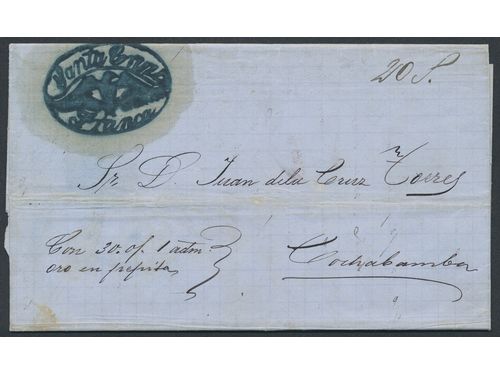 Santa Cruz
Franca
20 S.
Sr. D. Juan dela Cruz Torres
Con 30. of. 1 adm
oro en pepita
Cochabamba